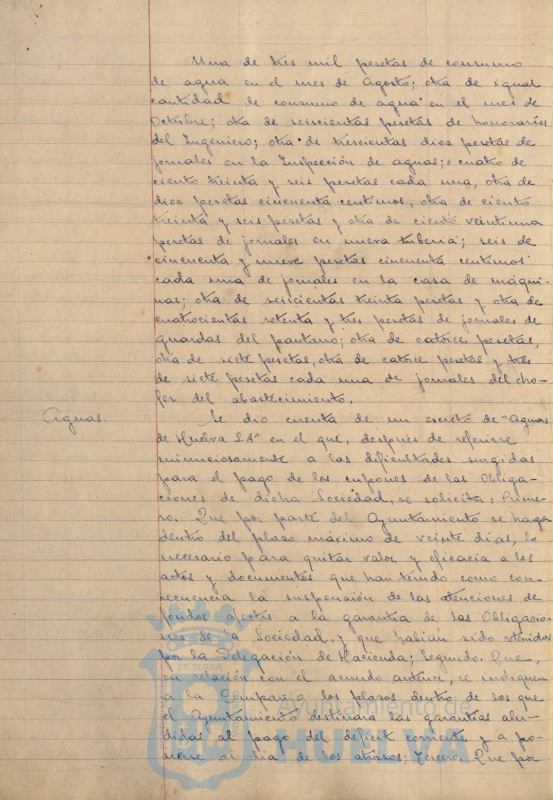 Una de tres mil pesetas de consumo
de agua en el mes de Agosto; otra de igual
cantidad de consumo de agua en el mes de
Octubre; otra de seiscientas pesetas de honorarios
del Ingeniero; otra de trescientas diez pesetas de
jornales en la Inspección de aguas; cuatro de
ciento treinta y seis pesetas cada una, otra de
diez pesetas cincuenta centimos, otra de ciento
treinta y seis pesetas y otra de ciento veintiuna
pesetas de jornales en nueva tuberia; seis de
cincuenta y nueve pesetas cincuenta centimos
cada una de jornales en la casa de máqui-
nas; otra de seiscientas treinta pesetas y otra de
cuatrocientas setenta y tres pesetas de jornales de
guardas del pantano; otra de catorce pesetas,
otra de siete pesetas, otra de catorce pesetas y tres
de siete pesetas cada una de jornales del cho-
fer del abastecimiento.
Aguas. Se dio cuenta de un escrito de "Aguas
de Huelva S.A" en el que, después de referirse
minuciosamente a las dificultades surgidas
para el pago de los cupones de las Obliga-
ciones de dicha Sociedad, se solicita: Prime-
ro. Que por parte del Ayuntamiento se haga
dentro del plazo máximo de veinte dias, lo
necesario para quitar valor y eficacia a los
actos y documentos que han tenido como con-
secuencia la suspensión de las atenciones de
fondos afectos a la garantia de las Obligacio-
nes de la Sociedad, y que habian sido retenidos
por la Delegación de Hacienda; Segundo. Que,
en relación con el acuerdo anterior, se indiquen
a la Compañia los plazos dentro de los que
el Ayuntamiento destinará las garantias alu-
didas al pago del deficit corriente y a po-
nerse al dia de los atrasos; Tercero. Que por
ET TERRÆ
Ayuntamiento de
HUELVA